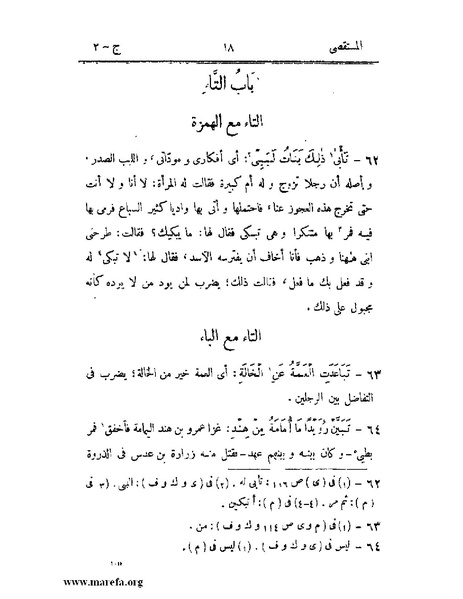 المستقصى ١٨ ج – ٢
بَابُ التَّاءِ
التاء مع الهمزة
٦٢ – تَأْبَىٰ ذٰلِكَ بَنَاتُ لُبَيْبِىْ: أى أفكارى و موداتى، و اللبب الصدر.
و أصله أن رجلا تزوج و له أم كبيرة فقالت له المرأة: لا أنا و لا أنت
حتى تخرج هذه العجوز عناء فاحتملها و أتى بها واديا كثير السباع فرمى بها
فيه فمر بها متنكرا و هى تبكى فقال لها: ما يبكيك؟ فقالت: طرحنى
ابنى هٰهنا و ذهب فأنا أخاف أن يفترسه الأسد، فقال لها: لا تبكى له
و قد فعل بك ما فعل، فقالت ذلك؛ يضرب لمن يود من لا يوده كأنه
مجبول على ذلك.
التاء مع الباء
٦٣ – تَبَاعَدَتِ الْعَمَّةُ عَنِ الْخَالَةِ: أى العمة خير من الخالة؛ يضرب فى
التفاضل بين الرجلين.
٦٤ – تَبَيَّنْ رُوَيْدًا مَا أُمَامَةُ مِنْ هِنْدِ: غزا عمرو بن هند اليمامة فأخفق فمر
بطيئ – و كان بينه و بينهم عهد – فقتل منه زرارة بن عدس فى الذروة
٦٢ – (١) فى (ى) ص ١٠٦: تأبى له. (٢) فى (ى و ك و ف): البى. (٣) فى
(م): ثم مر. (٤–٤) فى (م): أتبكين.
٦٣ – (١) فى (م و ى ص ١١٤ و ك و ف): من.
٦٤ – ليس فى (ى و ك و ف). (١) ليس فى (م).
www.marefa.org